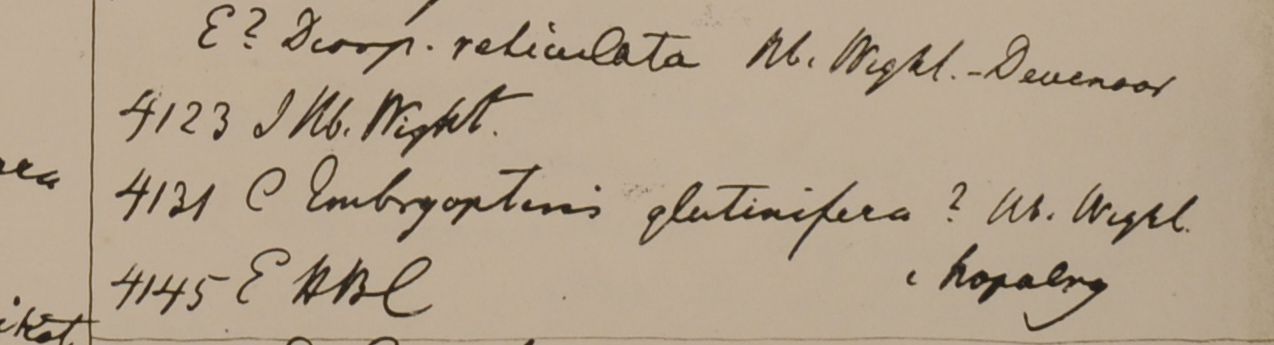 E? Diosp. reticulata Hb. Wight. - Devenoor
4123 I Hb. Wight.
4131 C Embryopteris glutinifera ? Hb. Wight.
4145 E HBC